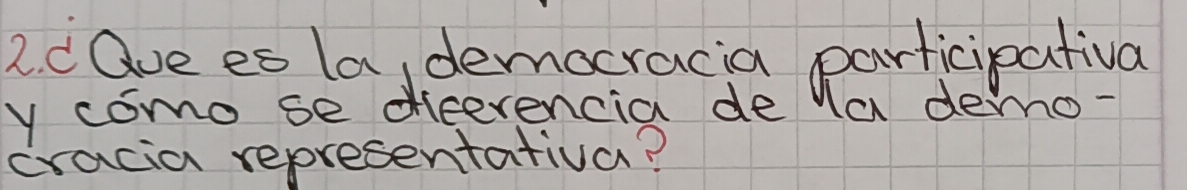 2.¿Que es la, democracia participativa
y cómo se diferencia de la demo-
cracia representativa?